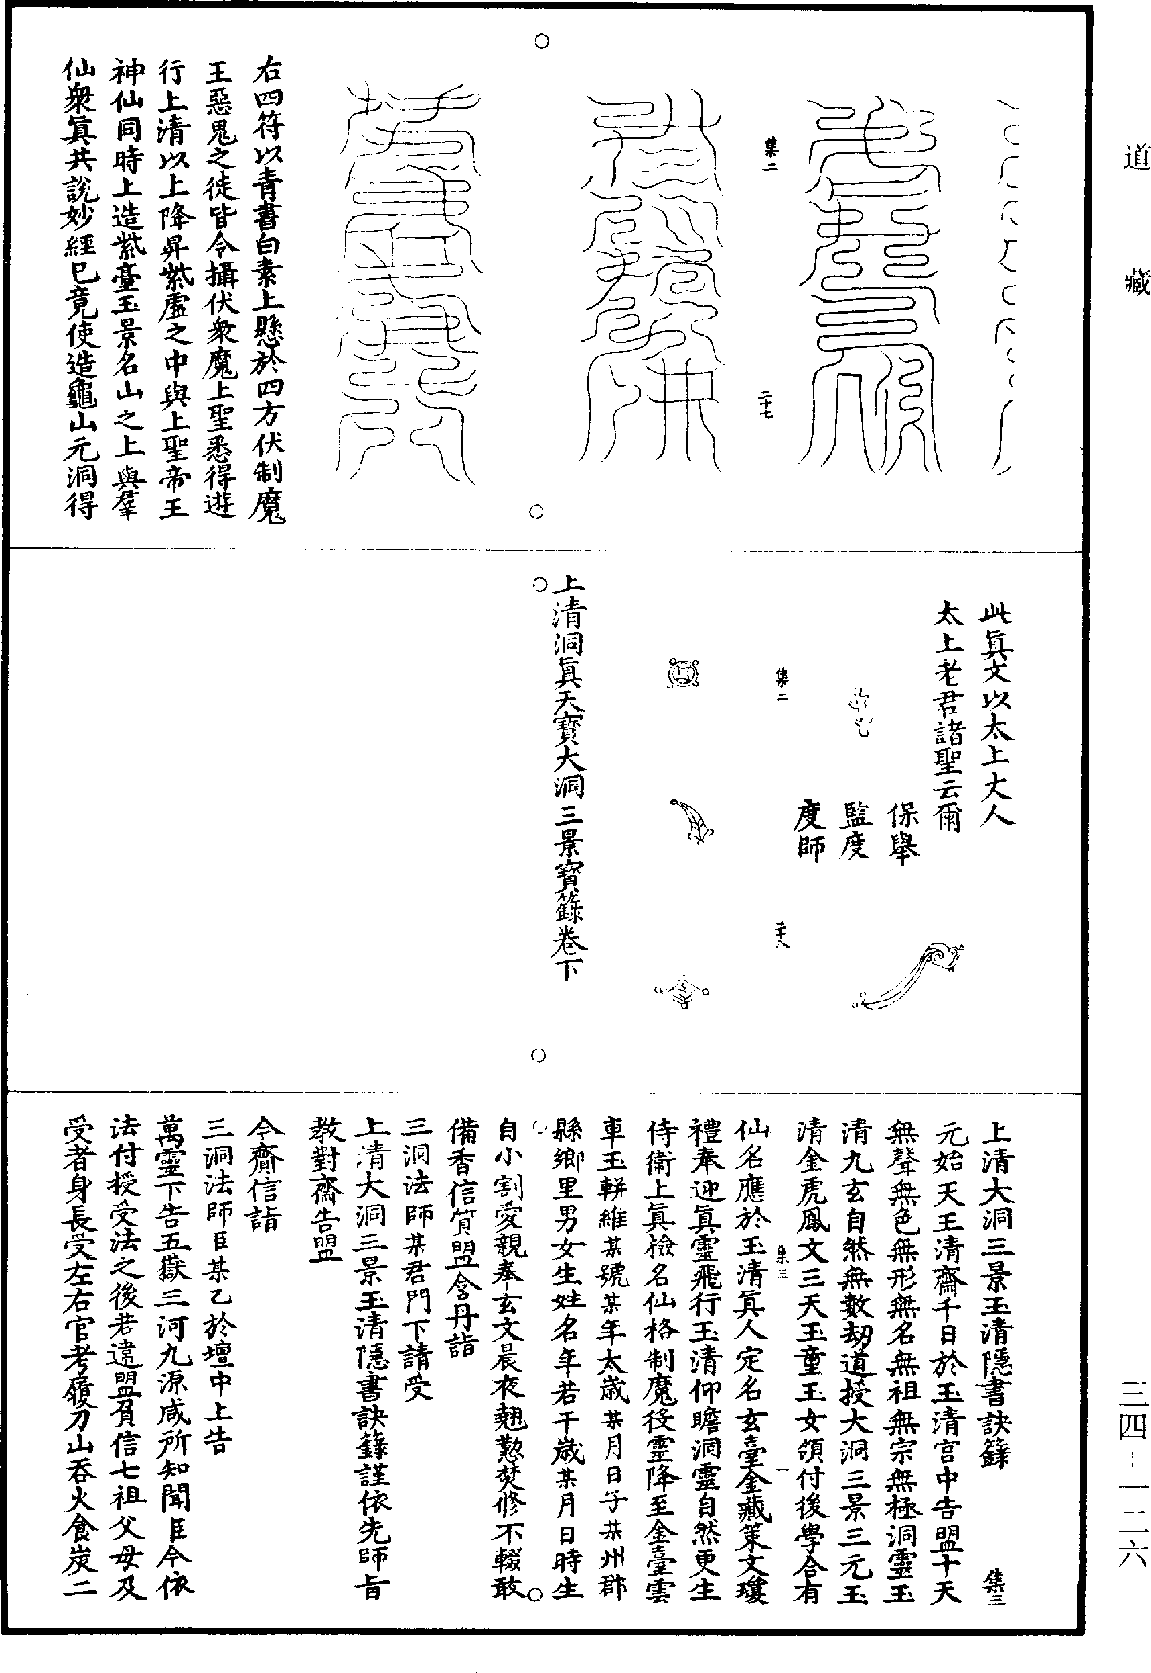 道藏
集二
二十七
右四符以青書白素上懸於四方伏制魔
王惡鬼之徒皆令攝伏衆魔上聖悉得遊
行上清以上降昇紫虛之中與上聖帝王
神仙同時上造紫臺玉景名山之上與羣
仙衆眞共說妙經已竟使造龜山元洞得
此眞文以太上大人
太上老君諸聖云爾
保舉
監度
度師
集二
二十八
上清洞眞天寶大洞三景寶籙卷下
上清大洞三景玉清隱書訣籙
集三
元始天王清齋千日於玉清宮中告盟十天
無聲無色無形無名無祖無宗無極洞靈玉
清九玄自然無數劫道授大洞三景三元玉
清金虎鳳文三天玉童玉女領付後學合有
集三
一
仙名應於玉清眞人定名玄臺金藏策文瓊
禮奉迎眞靈飛行玉清仰瞻洞靈自然更生
侍衛上眞檢名仙格制魔役靈降至金臺雲
車玉輧維某號某年太歲某月日子某州郡
縣鄉里男女生姓名年若干歲某月日時生
自小割愛親奉玄文晨夜翹懃焚修不輟敢
備香信質盟含丹詣
三洞法師某君門下請受
上清大洞三景玉清隱書訣籙謹依先師旨
敎對齋告盟
今齎信詣
三洞法師臣某乙於壇中上告
萬靈下告五嶽三河九源咸所知聞臣今依
法付授受法之後若違盟負信七祖父母及
受者身長受左右官考履刀山吞火食炭二
三四-一二六